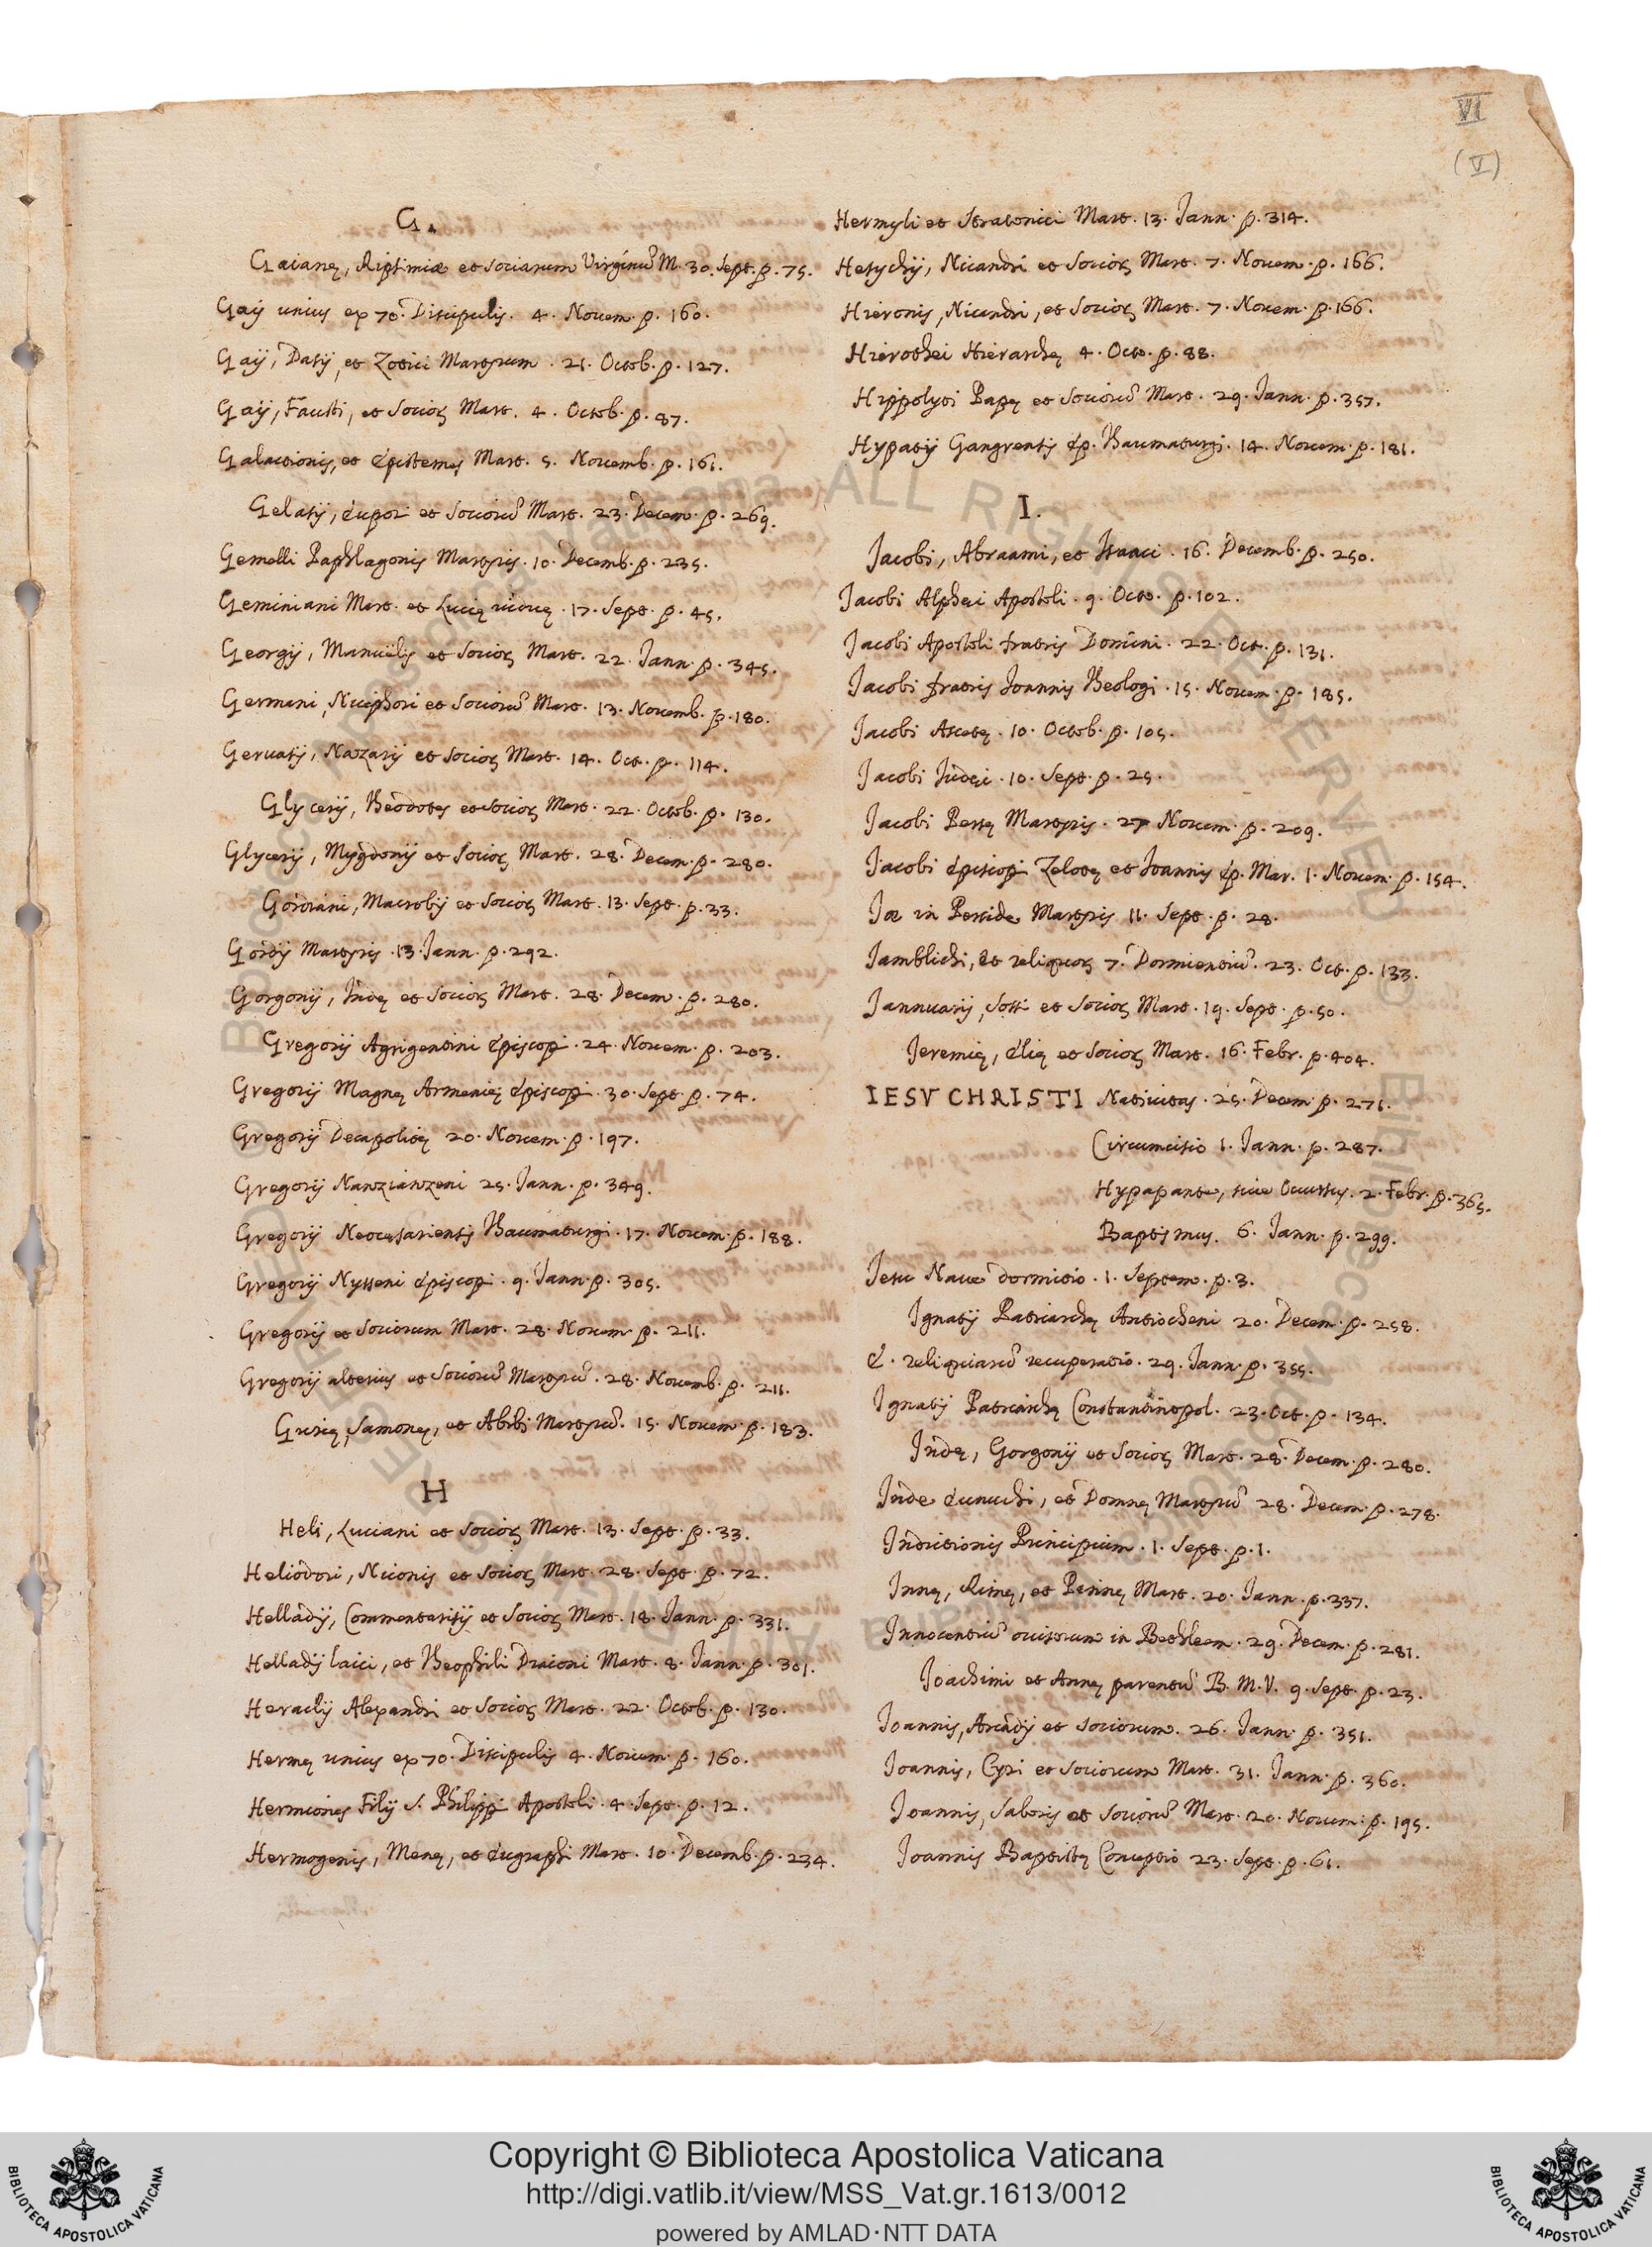 VI
(V)
G.
Gaianę, Ripsimiæ et sociarum Virginũ M. 30. Sept. p. 75.
Gaij unius ex 70. Discipulis. 4. Novem. p. 160.
Gaij, Dasij, et Zotici Martyrum. 21. Octob. p. 127.
Gaij, Fausti, et socioꝝ Mart. 4. Octob. p. 87.
Galactionis, et Epistemes Mart. 5. Novemb. p. 161.
Gelasij, Eupori et sociorũ Mart. 23. Decem. p. 269.
Gemelli Paphlagonis Martyris. 10. Decemb. p. 235.
Geminiani Mart. et Lucię viduę. 17. Sept. p. 45.
Georgij, Manuëlis et socioꝝ Mart. 22. Iann. p. 345.
Germani, Niciphori et sociorũ Mart. 13. Novemb. p. 180.
Gervasij, Nazarij et socioꝝ Mart. 14. Oct. p. 114.
Glycerij, Theodotes et socioꝝ Mart. 22. Octob. p. 130.
Glycerij, Mygdonij et socioꝝ Mart. 28. Decem. p. 280.
Gordiani, Macrobij et socioꝝ Mart. 13. Sept. p. 33.
Gordij Martyris. 13. Iann. p. 292.
Gorgonij, Indę et socioꝝ Mart. 28. Decem. p. 280.
Gregorij Agrigentini Episcopi. 24. Novem. p. 203.
Gregorij Magnę Armenię Episcopi. 30. Sept. p. 74.
Gregorij Decapolitę 20. Novem. p. 197.
Gregorij Nanzianzeni 25. Iann. p. 349.
Gregorij Neocesariensis Thaumaturgi. 17. Novem. p. 188.
Gregorij Nysseni Episcopi. 9. Iann. p. 305.
Gregorij et sociorum Mart. 28. Novem. p. 211.
Gregorij alterius et sociorũ Martyrũ. 28. Novemb. p. 211.
Gurię, Samonę, et Abibi Martyrũ. 15. Novem. p. 183.
H
Heli, Luciani et socioꝝ Mart. 13. Sept. p. 33.
Heliodori, Niconis et socioꝝ Mart. 28. Sept. p. 72.
Helladij, Commentarisij et socioꝝ Mart. 18. Iann. p. 331.
Helladij laici, et Theophili Diaconi Mart. 8. Iann. p. 301.
Heraclij Alexandri et socioꝝ Mart. 22. Octob. p. 130.
Hermę unius ex 70. Discipulis 4. Novem. p. 160.
Hermiones Filij S. Philippi Apostoli. 4. Sept. p. 12.
Hermogenis, Menę, et Eugraphi Mart. 10. Decemb. p. 234.
Hermyli et Stratonici Mart. 13. Iann. p. 314.
Hesychij, Nicandri et socioꝝ Mart. 7. Novem. p. 166.
Hieronis, Nicandri, et socioꝝ Mart. 7. Novem. p. 166.
Hierothei Hierarchę 4. Octo. p. 88.
Hippolyti Papę et sociorũ Mart. 29. Iann. p. 357.
Hypatij Gangrensis Ep. Thaumaturgi. 14. Novem. p. 181.
I.
Jacobi, Abraami, et Isaaci. 16. Decemb. p. 250.
Jacobi Alphei Apostoli. 9. Octo. p. 102.
Jacobi Apostoli fratris Domini. 22. Oct. p. 131.
Jacobi fratris Joannis Theologi. 15. Novem. p. 185.
Jacobi Ascetę. 10. Octob. p. 105.
Jacobi Judęi. 10. Sept. p. 25.
Jacobi Persę Martyris. 27 Novem. p. 209.
Jacobi Episcopi Zelotę et Joannis Ep. Mar. 1. Novem. p. 154.
Jæ in Perside Martyris 11. Sept. p. 28.
Jamblichi, et reliquoꝝ 7. Dormientiũ. 23. Oct. p. 133.
Jannuarij, Sossi et socioꝝ Mart. 19. Sept. p. 50.
Jeremię, Elię et socioꝝ Mart. 16. Febr. p. 404.
IESV CHRISTI Nativitas. 25. Decem. p. 271.
Circumcisio 1. Iann. p. 287.
Hypapante, sive Occursus. 2. Febr. p. 365.
Baptismus. 6. Iann. p. 299.
Jesu Nave dormitio. 1. Septem. p. 3.
Ignatij Patriarchę Antiocheni 20. Decem. p. 258.
E. reliquiarũ recuperatio. 29. Iann. p. 355.
Ignatij Patriarchę Constantinopol. 23. Oct. p. 134.
Indę, Gorgonij et socioꝝ Mart. 28. Decem. p. 280.
Inde Eunuchi, et Domnę Martyrũ 28. Decem. p. 278.
Indictionis Principium. 1. Sept. p. 1.
Innę, Rimę, et Pinnę Mart. 20. Iann. p. 337.
Innocentiũ occisorum in Bethleem. 29. Decem. p. 281.
Joachimi et Annę parentũ B. M. V. 9. Sept. p. 23.
Joannis, Arcadij et sociorum. 26. Iann. p. 351.
Joannis, Cyri et sociorum Mart. 31. Iann. p. 360.
Joannis, Saboris et sociorũ Mart. 20. Novem. p. 195.
Joannis Baptistę Conceptio 23. Sept. p. 61.
Copyright © Biblioteca Apostolica Vaticana
http://digi.vatlib.it/view/MSS_Vat.gr.1613/0012
powered by AMLAD·NTT DATA
BIBLIOTECA APOSTOLICA VATICANA
BIBLIOTECA APOSTOLICA VATICANA